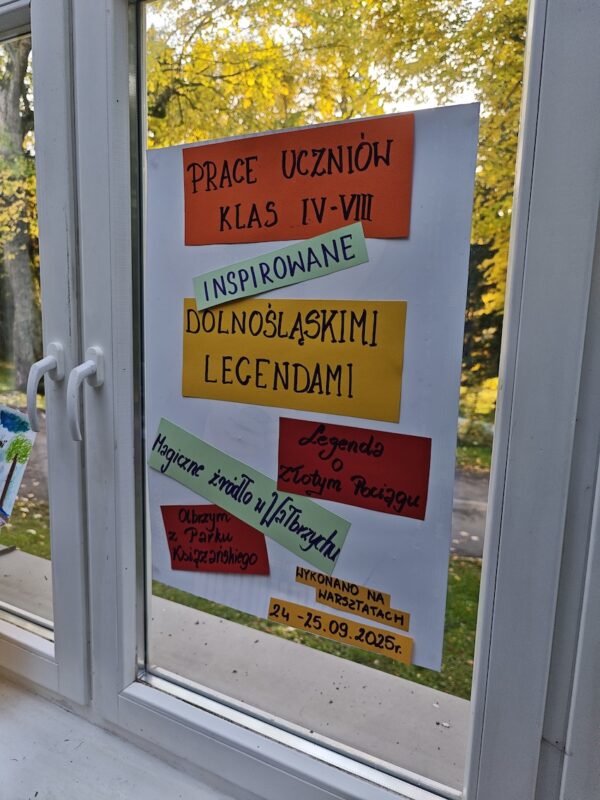 PRACE UCZNIÓW
KLAS IV-VIII
INSPIROWANE
DOLNOŚLĄSKIMI
LEGENDAMI
Legenda
o
Złotym Pociągu
Magiczne źródło w Wałbrzychu
Olbrzym
z Parku
Książańskiego
WYKONANO NA
WARSZTATACH
24 -25.09.2025r.